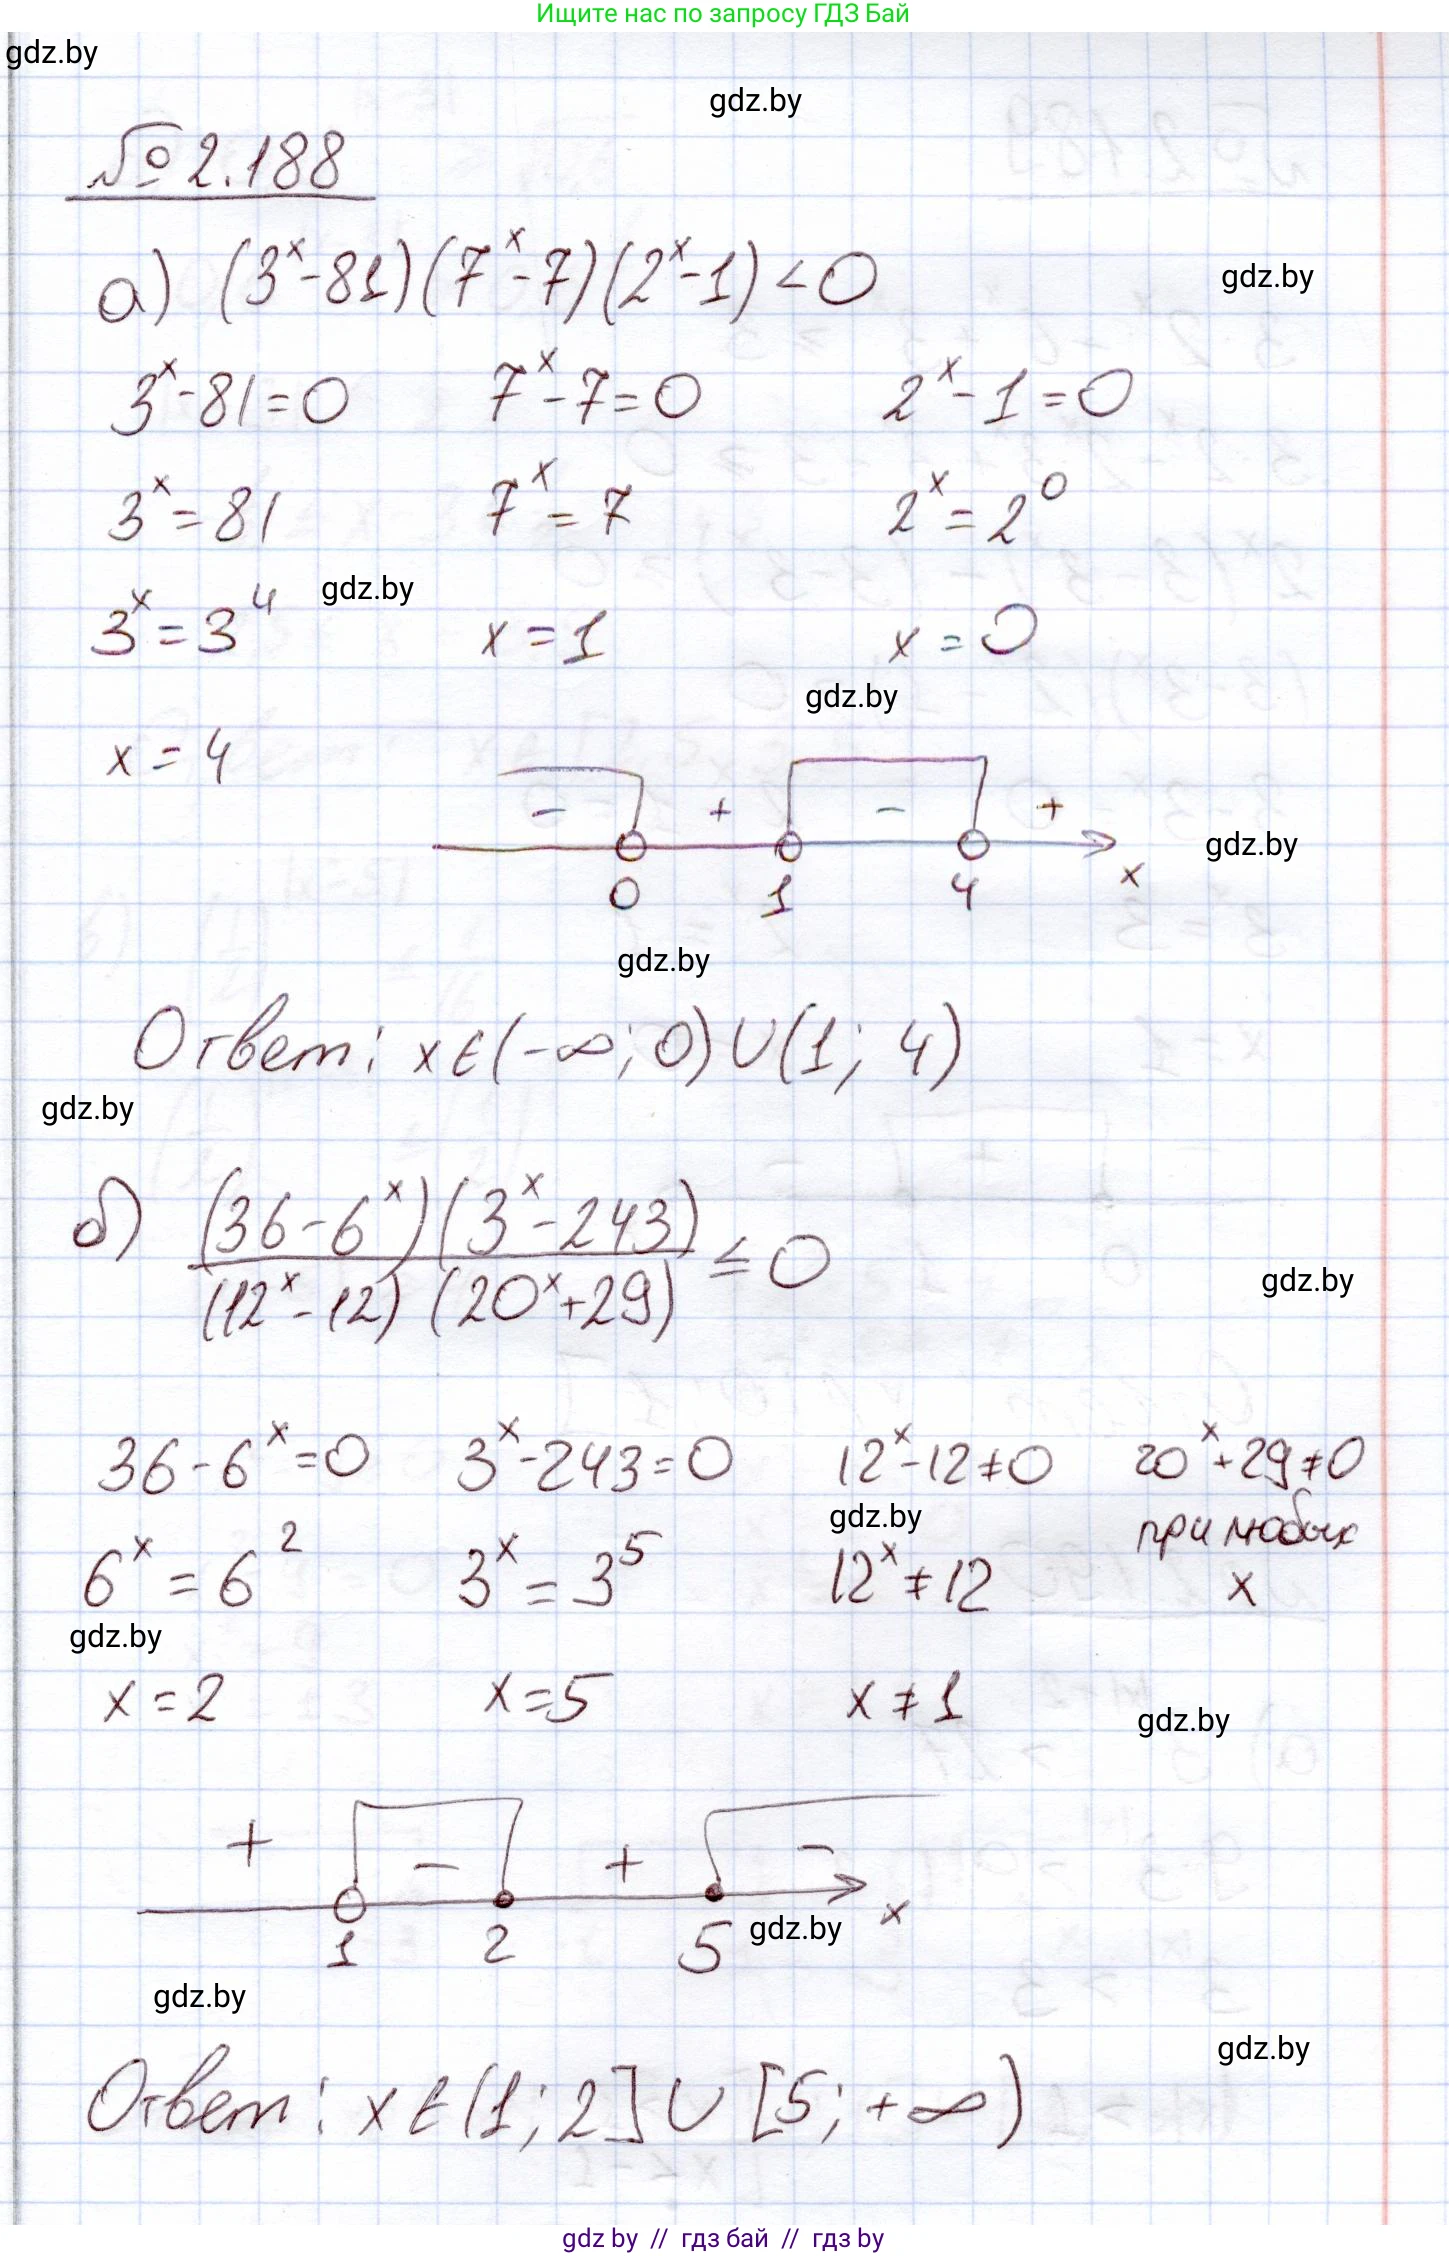 Ищите нас по запросу ГДЗ Бай
gdz.by
gdz.by
№ 2.188
а) (3^x-81)(7^x-7)(2^x-1)<0
gdz.by
3^x-81=0 7^x-7=0 2^x-1=0
3^x=81 7^x=7 2^x=2^0
gdz.by
3^x=3^4 x=1 x=0
gdz.by
x=4
- + - +
gdz.by
0 1 4 x
gdz.by
Ответ: x∈(-∞;0)∪(1;4)
gdz.by
б) (36-6^x)(3^x-243)/(12^x-12)(20^x+29)≤0
gdz.by
36-6^x=0 3^x-243=0 12^x-12≠0 20^x+29≠0
gdz.by при любых
6^x=6^2 3^x=3^5 12^x≠12 x
gdz.by
x=2 x=5 x≠1
gdz.by
+ - + -
1 2 5 x
gdz.by
gdz.by
gdz.by
Ответ: x∈(1;2]∪[5;+∞)
gdz.by // гдз бай // гдз by